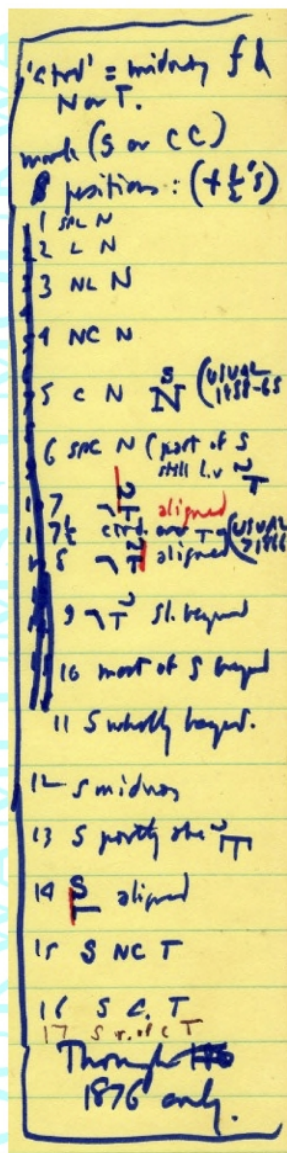 'ctrd' = midway f d
N or T.
mark (S or CC)
8 positions: (+ ½'s)
1 SPL N
2 L N
3 NL N
4 NC N
5 C N S N (USUAL 1858-65
6 SPC N (part of S
still L. v T
7 T aligned
7½ ctrd. over T (USUAL 71866
8 T aligned
9 T sl. beyond
10 most of S beyond
11 S wholly beyond.
12 S midway
13 S partly T
14 S T aligned
15 S NC T
16 S C. T
17 S r. of c T
Through
1876 only.